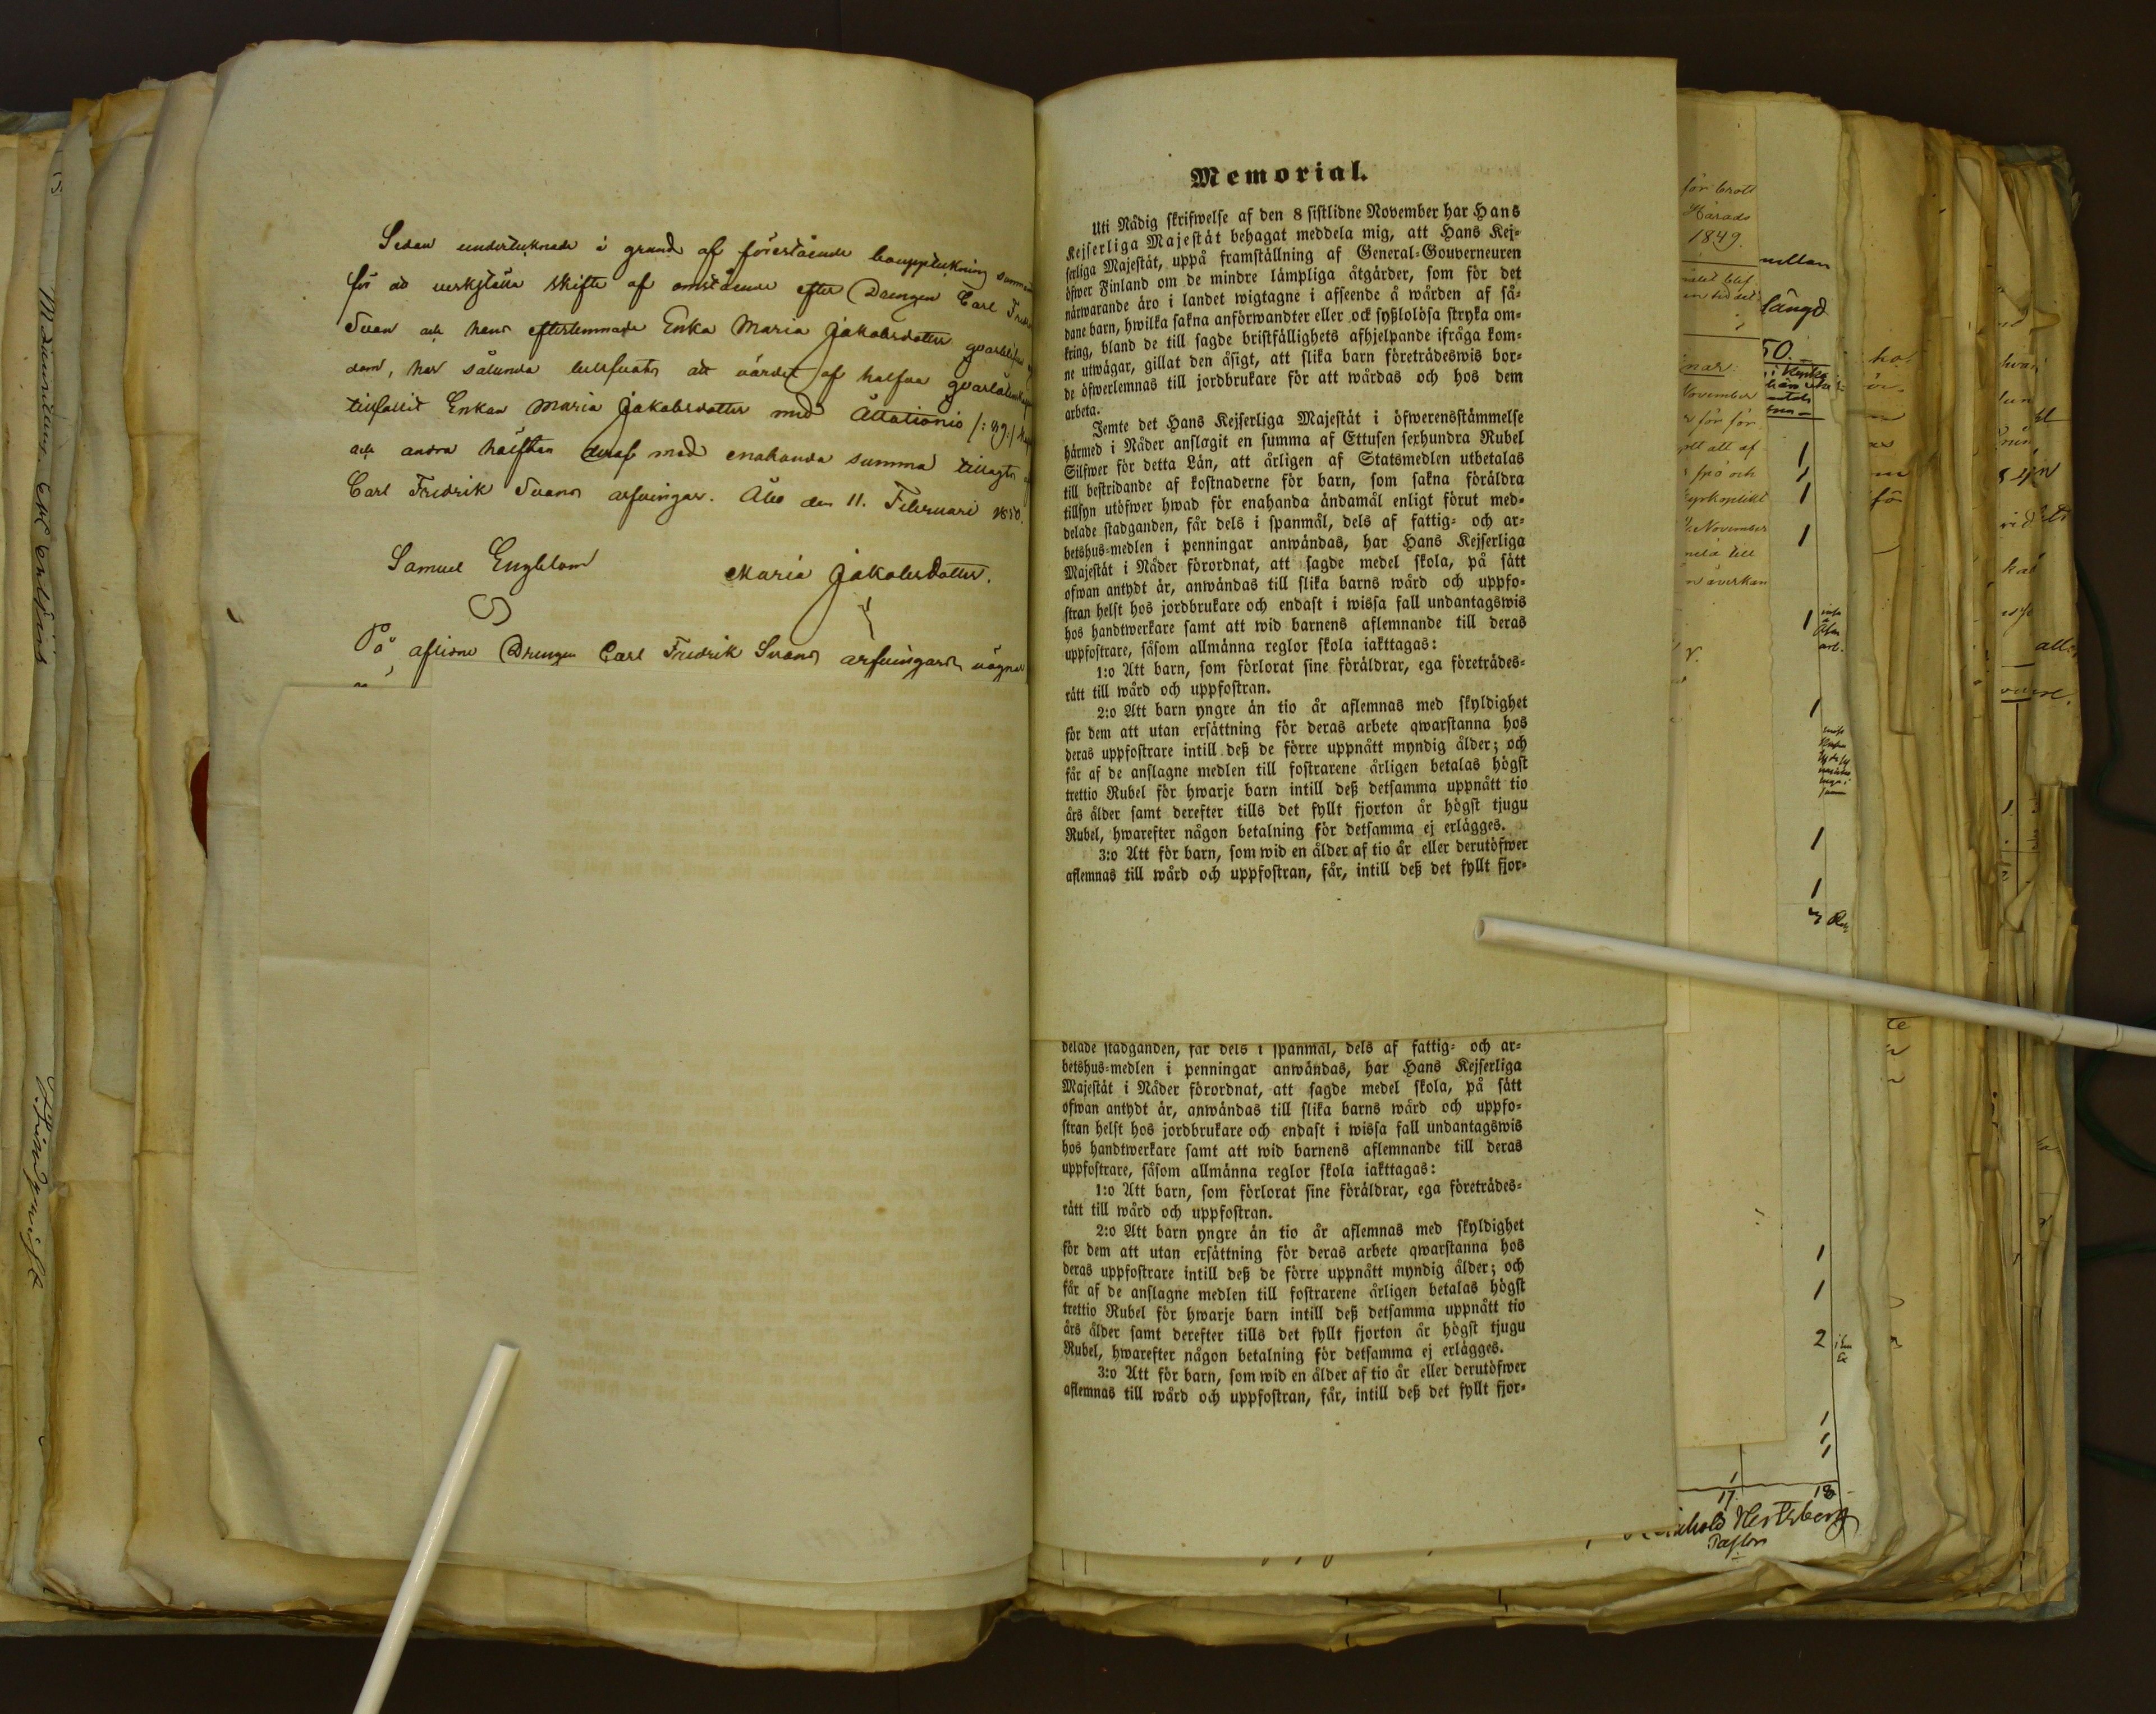 Sedan undertecknade å grund af förestående bouppteckning
för att verkställa skifte af omstående efter Drengen Carl
Svan och hans efterlemnade Enka Maria Jakobsdotter
dem, har sålunda att värdet af halfva
tillfallit Enkan Maria Jakobsdotter med Åttationio /: 89 :/
och andra hälften deraf med enahanda summa tillagts
Carl Fredrik Svans arfvingar. Åbo den 11. Februari 1850.
Samuel Engblom
Maria Jakobsdotter.
På aflidne Drengen Carl Fredrik Svans arfvingars vägnar
Memorial.
Uti Nådig skrifwelse af den 8 sistlidne November har Hans
Kejserliga Majestät behagat meddela mig, att Hans Kej-
serliga Majestät, uppå framställning af General-Gouverneuren
öfwer Finland om de mindre lämpliga åtgärder, som för det
närwarande äro i landet wigtagne i afseende å wården af så-
dane barn, hwilka sakna anförwandter eller ock sysslolösa stryka om-
kring, bland de till sagde bristfällighets afhjelpande ifråga kom-
ne utwägar, gillat den åsigt, att slika barn företrädeswis bor-
de öfwerlemnas till jordbrukare för att wårdas och hos dem
arbeta.
Jemte det Hans Kejserliga Majestät i öfwerensstämmelse
härmed i Nåder anslagit en summa af Ettusen sexhundra Rubel
Silfwer för detta Län, att årligen af Statsmedlen utbetalas
till bestridande af kostnaderne för barn, som sakna föräldra
tillsyn utöfwer hwad för enahanda ändamål enligt förut med-
delade stadganden, får dels i spanmål, dels af fattig- och ar-
betshus-medlen i penningar anwändas, har Hans Kejserliga
Majestät i Nåder förordnat, att sagde medel skola, på sätt
ofwan antydt är, anwändas till slika barns wård och uppfo-
stran helst hos jordbrukare och endast i wissa fall undantagswis
hos handtwerkare samt att wid barnens aflemnande till deras
uppfostrare, såsom allmänna reglor skola iakttagas:
1:o Att barn, som förlorat sine föräldrar, ega företrädes-
rätt till wård och uppfostran.
2:o Att barn yngre än tio år aflemnas med skyldighet
för dem att utan ersättning för deras arbete qwarstanna hos
deras uppfostrare intill deß de förre uppnått myndig ålder; och
får af de anslagne medlen till fostrarene årligen betalas högst
trettio Rubel för hwarje barn intill deß detsamma uppnått tio
års ålder samt derefter tills det fyllt fjorton år högst tjugu
Rubel, hwarefter någon betalning för detsamma ej erlägges.
3:o Att för barn, som wid en ålder af tio år eller derutöfwer
aflemnas till wård och uppfostran, får, intill deß det fyllt fjor-
delade stadganden, får dels i spanmål, dels af fattig- och ar-
betshus-medlen i penningar anwändas, har Hans Kejserliga
Majestät i Nåder förordnat, att sagde medel skola, på sätt
ofwan antydt är, anwändas till slika barns wård och uppfo-
stran helst hos jordbrukare och endast i wissa fall undantagswis
hos handtwerkare samt att wid barnens aflemnande till deras
uppfostrare, såsom allmänna reglor skola iakttagas:
1:o Att barn, som förlorat sine föräldrar, ega företrädes-
rätt till wård och uppfostran.
2:o Att barn yngre än tio år aflemnas med skyldighet
för dem att utan ersättning för deras arbete qwarstanna hos
deras uppfostrare intill deß de förre uppnått myndig ålder; och
får af de anslagne medlen till fostrarene årligen betalas högst
trettio Rubel för hwarje barn intill deß detsamma uppnått tio
års ålder samt derefter tills det fyllt fjorton år högst tjugu
Rubel, hwarefter någon betalning för detsamma ej erlägges.
3:o Att för barn, som wid en ålder af tio år eller derutöfwer
aflemnas till wård och uppfostran, får, intill deß det fyllt fjor-
för brott
Härads
1849.
mellan
längd
50.
November
för för
att af
spö och
November
till
åverkan
1
1
1
1
1
1
1
1
1
1
2
1
1
1
17 18
Hertzberg
Pastor